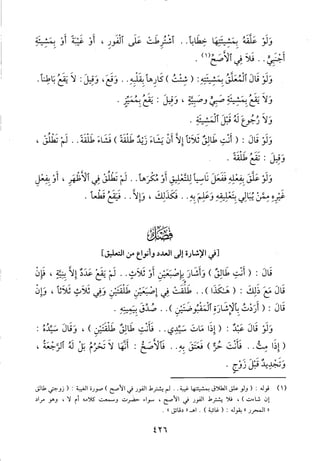 وَلَوْ عَلَّقَهُ بِمَشِيئَتِهَا خِطَاباً.. اشْتُرِطَتْ عَلَى الْفَوْرِ، أَوْ غَيْبَةً أَوْ بِمَشِيئَةِ
أَجْنَبِيٍّ.. فَلَا فِي الْأَصَحِّ (١).
وَلَوْ قَالَ الْمُعَلَّقُ بِمَشِيئَتِهِ: ( شِئْتُ ) كَارِهاً بِقَلْبِهِ.. وَقَعَ، وَقِيلَ: لَا يَقَعُ بَاطِناً.
وَلَا يَقَعُ بِمَشِيئَةِ صَبِيٍّ وَصَبِيَّةٍ، وَقِيلَ: يَقَعُ بِمُمَيِّزٍ.
وَلَا رُجُوعَ لَهُ قَبْلَ الْمَشِيئَةِ.
وَلَوْ قَالَ: ( أَنْتِ طَالِقٌ ثَلَاثاً إِلَّا أَنْ يَشَاءَ زَيْدٌ طَلْقَةً ) فَشَاءَ طَلْقَةً.. لَمْ تَطْلُقْ،
وَقِيلَ: تَقَعُ طَلْقَةٌ.
وَلَوْ عَلَّقَ بِفِعْلِهِ فَفَعَلَ نَاسِياً لِلتَّعْلِيقِ أَوْ مُكْرَهاً.. لَمْ تَطْلُقْ فِي الْأَظْهَرِ، أَوْ بِفِعْلِ
غَيْرِهِ مِمَّنْ يُبَالِي بِتَعْلِيقِهِ وَعَلِمَ بِهِ.. فَكَذَلِكَ، وَإِلَّا.. فَيَقَعُ قَطْعاً.
فَصْلٌ
[في الإشارة إلى العدد وأنواع من التعليق]
قَالَ: ( أَنْتِ طَالِقٌ ) وَأَشَارَ بِإِصْبَعَيْنِ أَوْ ثَلَاثٍ.. لَمْ يَقَعْ عَدَدٌ إِلَّا بِنِيَّةٍ، فَإِنْ
قَالَ مَعَ ذَلِكَ: ( هَكَذَا ).. طَلُقَتْ فِي إِصْبَعَيْنِ طَلْقَتَيْنِ وَفِي ثَلَاثٍ ثَلَاثاً، وَإِنْ
قَالَ: ( أَرَدْتُ بِالْإِشَارَةِ الْمَقْبُوضَتَيْنِ ).. صُدِّقَ بِيَمِينِهِ.
وَلَوْ قَالَ عَبْدٌ: ( إِذَا مَاتَ سَيِّدِي.. فَأَنْتِ طَالِقٌ طَلْقَتَيْنِ )، وَقَالَ سَيِّدُهُ:
( إِذَا مِتُّ.. فَأَنْتَ حُرٌّ ) فَعَتَقَ بِهِ.. فَالْأَصَحُّ: أَنَّهَا لَا تَحْرُمُ بَلْ لَهُ الرَّجْعَةُ،
وَتَجْدِيدٌ قَبْلَ زَوْجٍ.
(١) قوله: ( ولو علق الطلاق بمشيئتها غيبة.. لم يشترط الفور في الأصح ) صورة الغيبة: ( زوجتي طالق
إن شاءت )، فلا يشترط الفور في الأصح، سواء حضرت وسمعت كلامه أم لا، وهو مراد
« المحرر » بقوله: ( غائبة ). اهـ « دقائق ».
٤٢٦